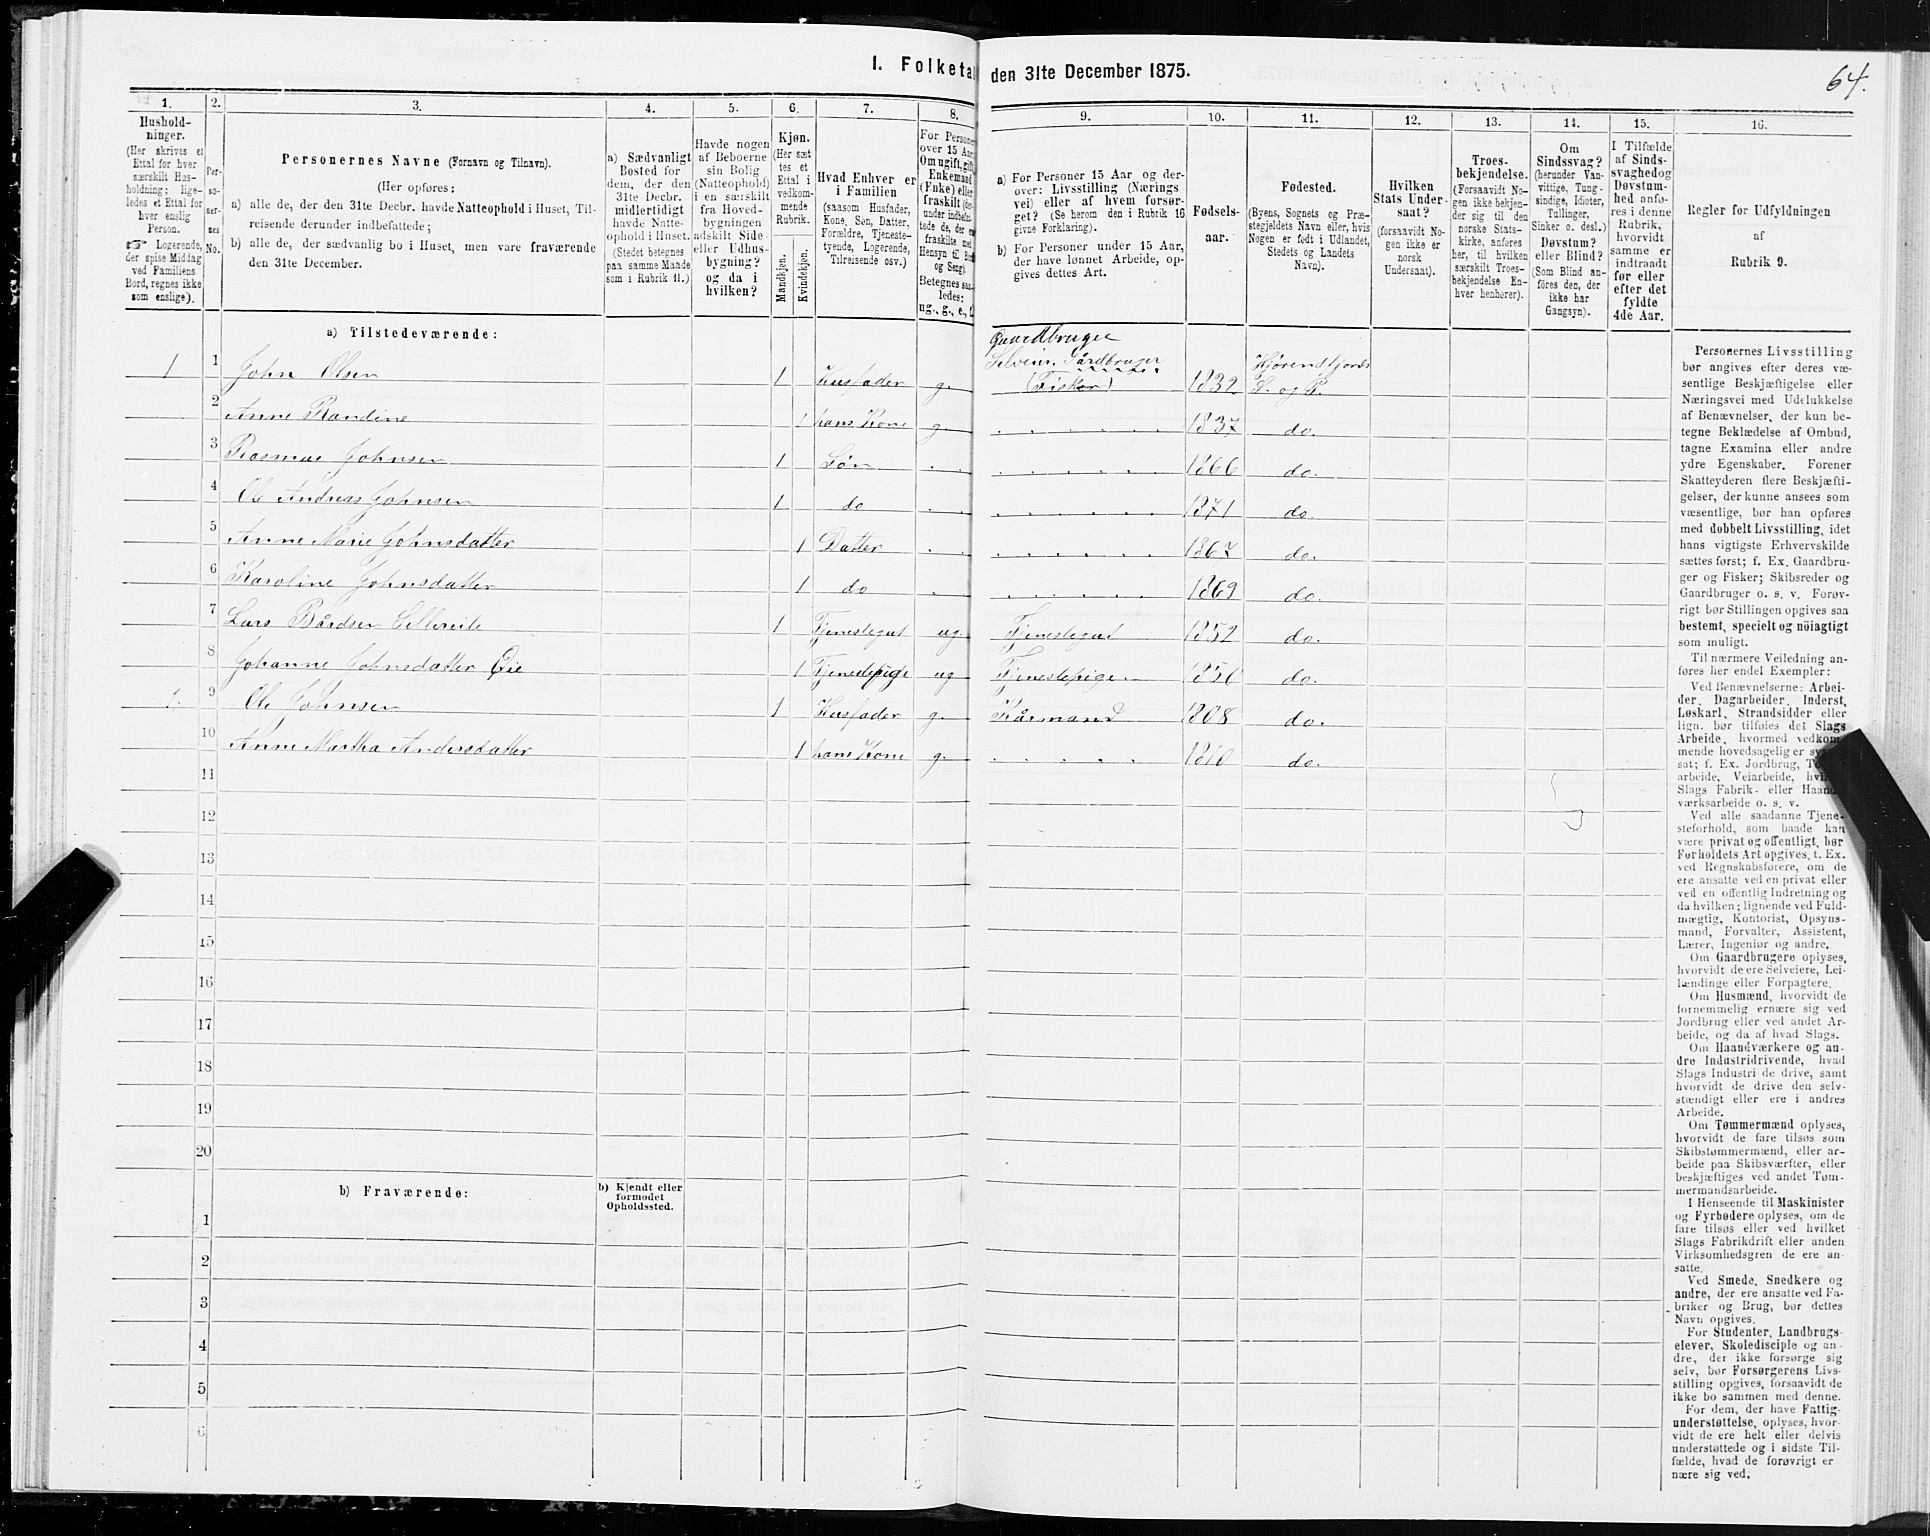 1. Folketal den 31te December 1875.
64.
1.
2.
3.
4.
5.
6.
7.
8.
9.
10.
11.
12.
13.
14.
15.
16.
Hushold-
ninger.
(Her skrives et
Ettal for hver
særskilt Hus-
holdning; lige-
ledes et Ettal for
hver enslig
Person.
☞ Logerende,
der spise Middag
ved Familiens
Bord, regnes ikke
som enslige).
Per-
so-
ner-
nes
No.
Personernes Navne (Fornavn og Tilnavn).
(Her opføres:
a) alle de, der den 31te Decbr. havde Natteophold i Huset, Til-
reisende derunder indbefattede;
b) alle de, der sædvanlig bo i Huset, men vare fraværende
den 31te December.
a) Sædvanligt
Bosted for
dem, der den
31te Decbr.
midlertidigt
havde Natte-
ophold i Huset.
(Stedet betegnes
paa samme Maade
som i Rubrik 11.)
Havde nogen
af Beboerne
sin Bolig
(Natteophold)
i en særskilt
fra Hoved-
bygningen
adskilt Side-
eller Udhus-
bygning?
og da i
hvilken?
Kjøn.
(Her sæt
tes et
Ettal i
vedkom-
mende
Rubrik.
Mandkjøn.
Kvindekjøn.
Hvad Enhver er
i Familien
(saasom Husfader,
Kone, Søn, Datter,
Forældre, Tjeneste-
tyende, Logerende,
Tilreisende osv.)
For Personer
over 15 Aar:
Om ugift, gift,
Enkemand
(Enke) eller
fraskilt
Betegnes saa-
ledes:
ug., g., e., f.
a) For Personer 15 Aar og der-
over: Livsstilling (Nærings
vei) eller af hvem forsør-
get? (Se herom den i Rubrik 16
givne Forklaring).
b) For Personer under 15 Aar,
der have lønnet Arbeide, op-
gives dettes Art.
Fødsels-
aar.
Fødested.
(Byens, Sognets og Præ-
stegjeldets Navn eller, hvis
Nogen er født i Udlandet,
Stedets og Landets
Navn).
Hvilken
Stats Under-
saat?
(forsaavidt No-
gen ikke er
norsk
Undersaat).
Troes-
bekjendelse.
(Forsaavidt No-
gen ikke bekjen-
der sig til den
norske Stats-
kirke, anføres
her, til hvilken
særskilt Troes-
bekjendelse En-
hver henhører).
Om
Sindssvag?
(herunder Van-
vittige, Tung-
sindige, Idioter,
Tullinger,
Sinker o. desl.)
Døvstum?
eller Blind?
(Som Blind an-
føres den, der
ikke har
Gangsyn).
I Tilfælde
af Sinds-
svaghed og
Døvstum-
hed anfø-
res i denne
Rubrik,
hvorvidt
samme er
indtraadt
før eller
efter det
fyldte
4de Aar.
Regler før Udfyldningen
af
Rubrik 9.
a) Tilstedeværende:
Gaardbruger
1 1 John Olsen 1 Husfader g. Selveier, Gårdbruger (Fisker) 1832 Hjørendfjords S. og P.
2 Anne Randine 1 hans Kone g. 1837 do.
3 Rasmus Johnsen 1 Søn 1866 do.
4 Ole Andreas Johnsen 1 do 1871 do.
5 Anne Marie Johnsdatter 1 Datter 1867 do.
6 Karoline Johnsdatter 1 do 1869 do.
7 Lars Bårdsen 1 Tjenestegut ug. Tjenestegut 1852 do.
8 Johanne Johnsdatter Øie 1 Tjenestepige ug Tjenestepige 1850 do.
1. 9 Ole Johnsen 1 Husfader g. Kårmand 1808 do.
10 Anne Martha Andersdatter 1 hans Kone g. 1810 do.
11
12
13
14
15
16
17
18
19
20
b) Fraværende:
b) Kjendt eller
formodet
Opholdssted.
1
2
3
4
5
6
Personernes Livsstilling
bør angives efter deres væ-
sentlige Beskjæftigelse eller
Næringsvei med Udelukkelse
af Benævnelser, der kun be-
tegne Beklædelse af Ombud,
tagne Examina eller andre
ydre Egenskaber. Forener
Skatteyderen flere Beskjæfti-
gelser, der kunne ansees som
væsentlige, bør han opføres
med dobbelt Livsstilling, idet
hans vigtigste Erhvervskilde
sættes først; f. Ex. Gaardbru-
ger og Fisker; Skibsreder og
Gaardbruger o. s. v. Forøv-
rigt bør Stillingen opgives saa
bestemt, specielt og nøiagtigt
som muligt.
Til nærmere Veiledning an-
føres her endel Exempler:
Ved Benævnelserne: Arbei-
der, Dagarbeider, Inderst,
Løskarl, Strandsidder eller
lign. bør tilføies det Slags
Arbeide, hvormed vedkom-
mende hovedsagelig er
sat; f. Ex. Jordbrug,
arbeide, Veiarbeide,
Slags Fabrik- eller Haand-
værksarbeide o. s. v.
Ved alle saadanne Tjene-
steforhold, som baade kan
være privat og offentligt, bør
Forholdets Art opgives, t. Ex.
ved Regnskabsførere, om de
ere ansatte ved en privat eller
ved en offentlig Indretning og
da hvilken; lignende ved Fuld-
mægtig, Kontorist, Opsyns-
mand, Forvalter, Assistent,
Lærer, Ingeniør og andre.
Om Gaardbrugere oplyses,
hvorvidt de ere Selveiere, Lei-
lændinge eller Forpagtere.
Om Husmænd, hvorvidt de
fornemmelig ernære sig ved
Jordbrug eller ved andet Ar-
beide, og da af hvad Slags.
Om Haandværkere og an-
dre Industridrivende, hvad
Slags Industri de drive, samt
hvorvidt de drive den selv-
stændigt eller ere i andres
Arbeide.
Om Tømmermænd oplyses,
hvorvidt de fare tilsøs som
Skibstømmermænd, eller ar-
beide paa Skibsværfter, eller
beskjæftiges ved andet Tøm-
mermandsarbeide.
I Henseende til Maskinister
og Fyrbødere oplyses, om de
fare tilsøs eller ved hvilket
Slags Fabrikdrift eller anden
Virksomhedsgren de ere an-
satte.
Ved Smede, Snedkere og
andre, der ere ansatte ved Fa-
briker og Brug, bør dettes
Navn opgives.
For Studenter, Landbrugs-
elever, Skoledisciple og an-
dre, der ikke forsørge sig
selv, bør Forsørgerens Livs-
stilling opgives, forsaavidt de
ikke bo sammen med denne.
For dem, der have Fattig-
understøttelse, oplyses, hvor-
vidt de ere helt eller delvis
understøttede og i sidste Til-
fælde, hvad de forøvrigt er
nære sig ved.